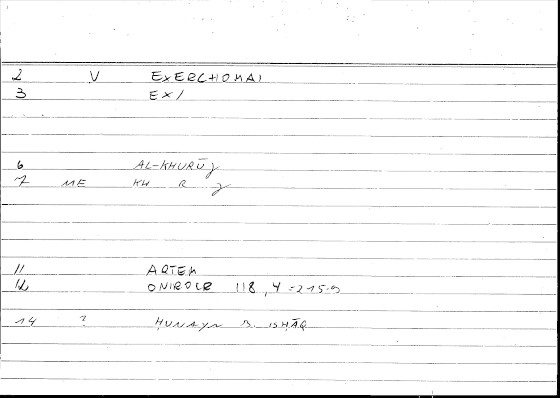 2 V EXERCHOMAI
3 EX/
6 AL-KHURŪJ
7 ME KH R J
11 ARTEM
12 ONIROCR 118,4 = 215.9
14 ? ḤUNAYN B. ISḤĀQ